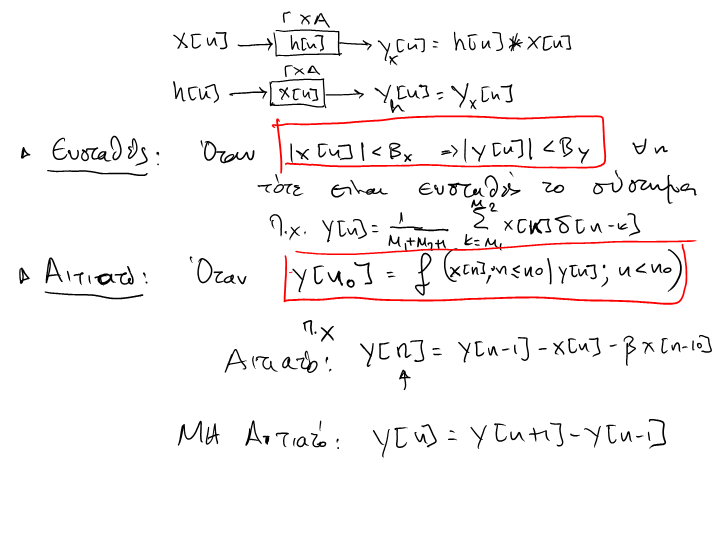 ΓΧΑ
x[n] → h[n] → y_x[n] = h[n] * x[n]
ΓΧΑ
h[n] → x[n] → y_h[n] = y_x[n]
Ευσταθές: Όταν |x[n]| < B_x ⇒ |y[n]| < B_y ∀n
τότε είναι ευσταθές το σύστημα
π.χ. y[n] = 1/(M_1+M_2+1) Σ_{k=M_1}^{M_2} x[k]δ[n-k]
Αιτιατό: Όταν y[n_0] = f(x[n]; n ≤ n_0 | y[n]; n < n_0)
π.χ
Αιτιατό: y[n] = y[n-1] - x[n] - βx[n-10]
↑
ΜΗ Αιτιατό: y[n] = y[n+1] - y[n-1]